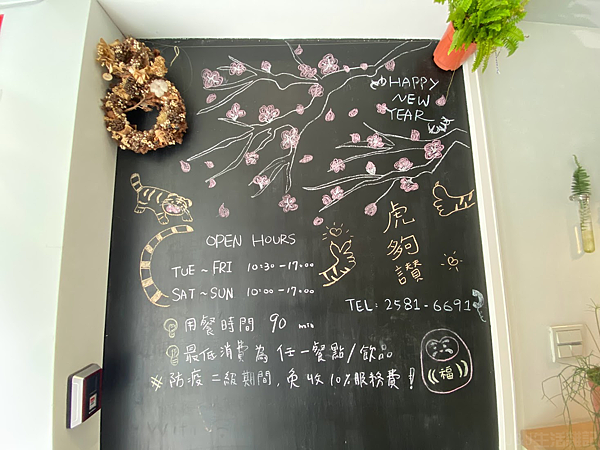 HAPPY
NEW
YEAR
虎
夠
讚
OPEN HOURS
TUE ~ FRI 10:30 - 17:00
SAT ~ SUN 10:00 - 17:00
TEL: 2581-6691
用餐時間 90 min
最低消費為 任一餐點/飲品
※防疫二級期間,免收10%服務費!
福